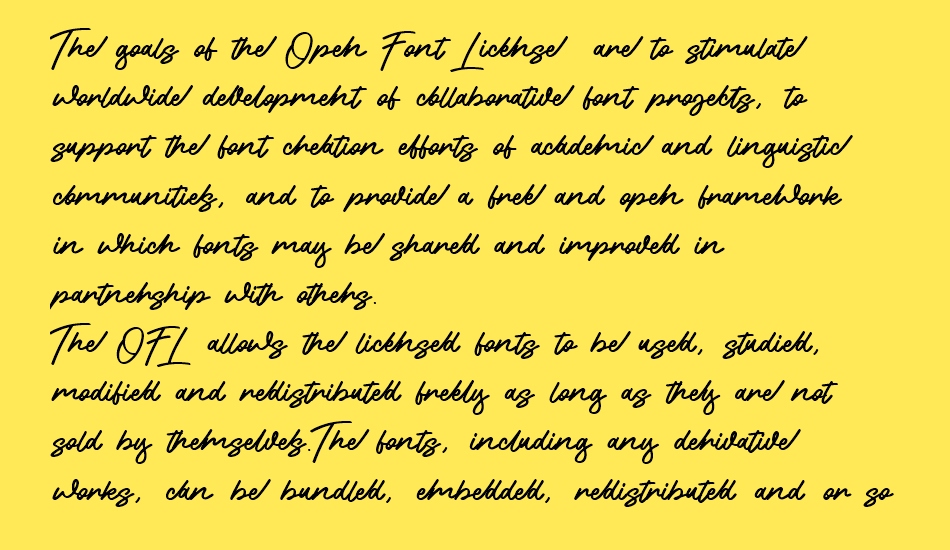 The goals of the Open Font License are to stimulate
worldwide development of collaborative font projects, to
support the font creation efforts of academic and linguistic
communities, and to provide a free and open framework
in which fonts may be shared and improved in
partnership with others.
The OFL allows the licensed fonts to be used, studied,
modified and redistributed freely as long as they are not
sold by themselves.The fonts, including any derivative
works, can be bundled, embedded, redistributed and or so